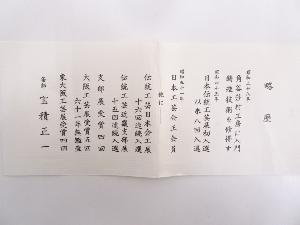 略歴
昭和三十五年
角谷莎村工房に入門
鋳造技術を修得す
昭和四十三年
日本伝統工芸展初入選
以来八回入選
昭和五十一年
日本工芸会正会員
他に
伝統工芸日本金工展
十六回連続入選
伝統工芸近畿支部展
十五回連続入選
支部展受賞四回
大阪工芸展受賞五回
六十一年無鑑査
東大阪工芸展受賞四回
釜師 宝積正一